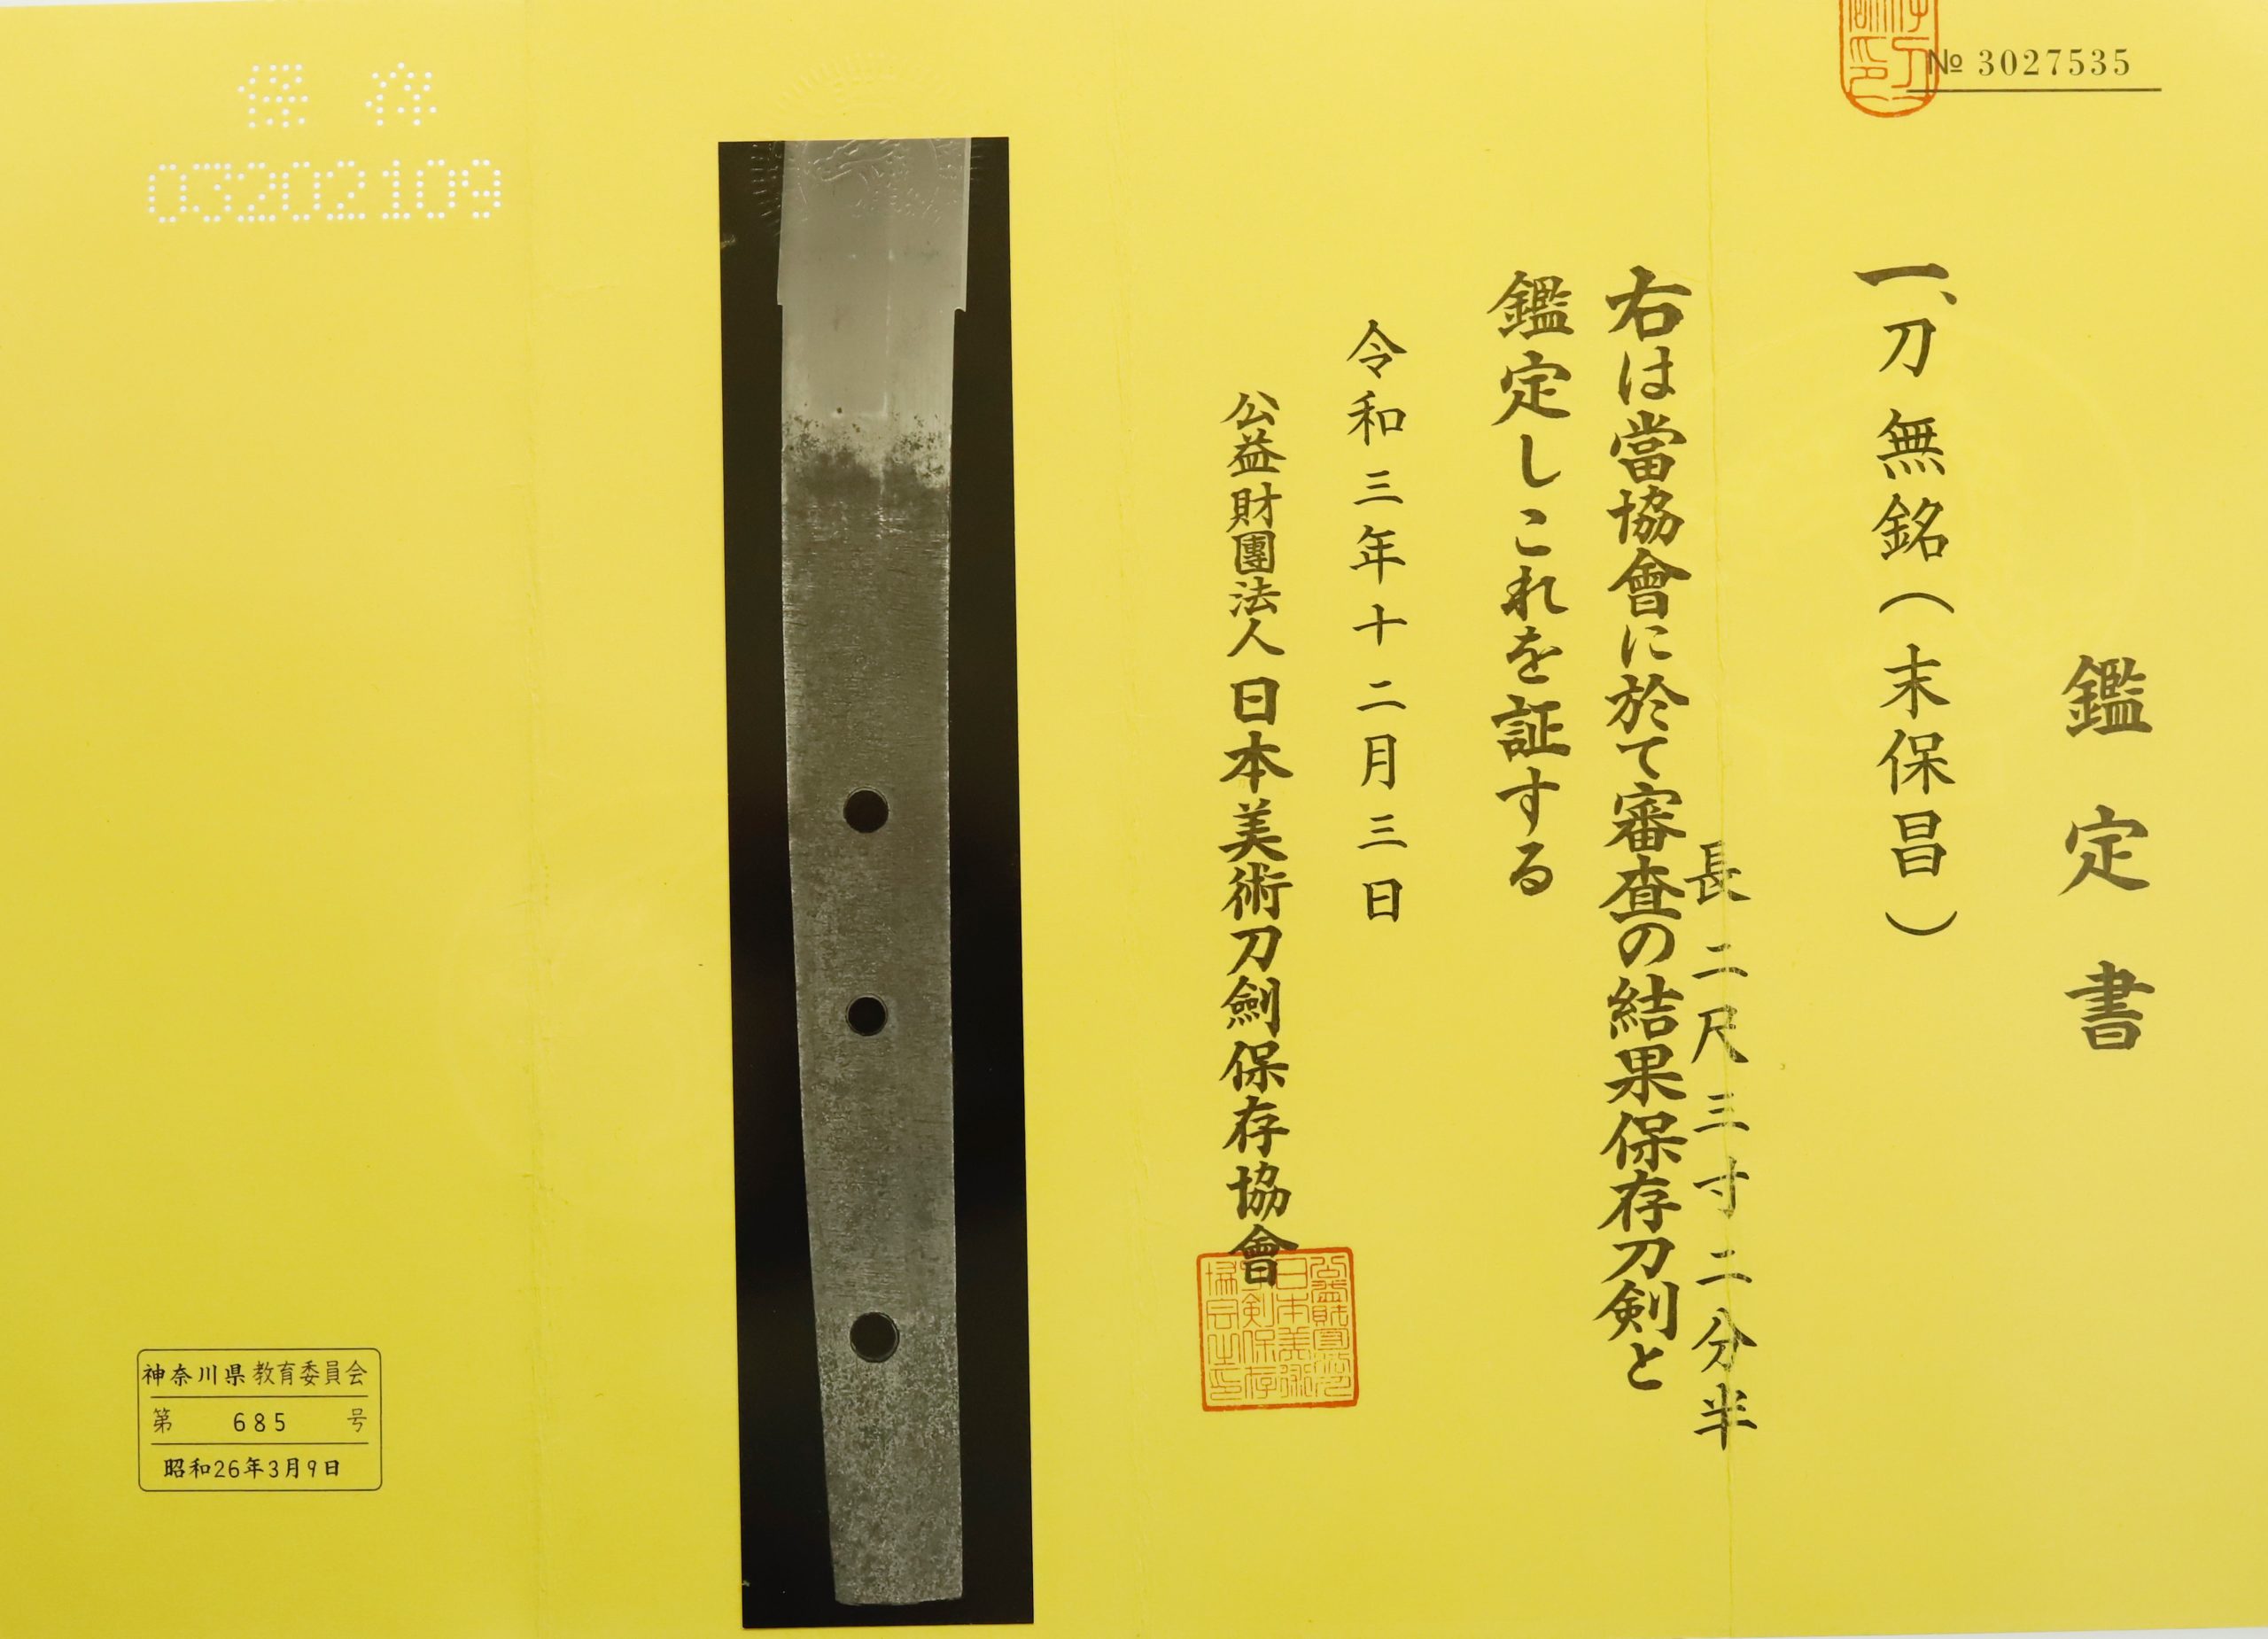 № 3027535
鑑定書
一、刀 無銘（末保昌）
長 二尺三寸二分半
右は當協會に於て審査の結果保存刀剣と
鑑定しこれを証する
令和三年十二月三日
公益財團法人 日本美術刀劍保存協會
保存
03202109
神奈川県教育委員会
第 685 号
昭和26年3月9日